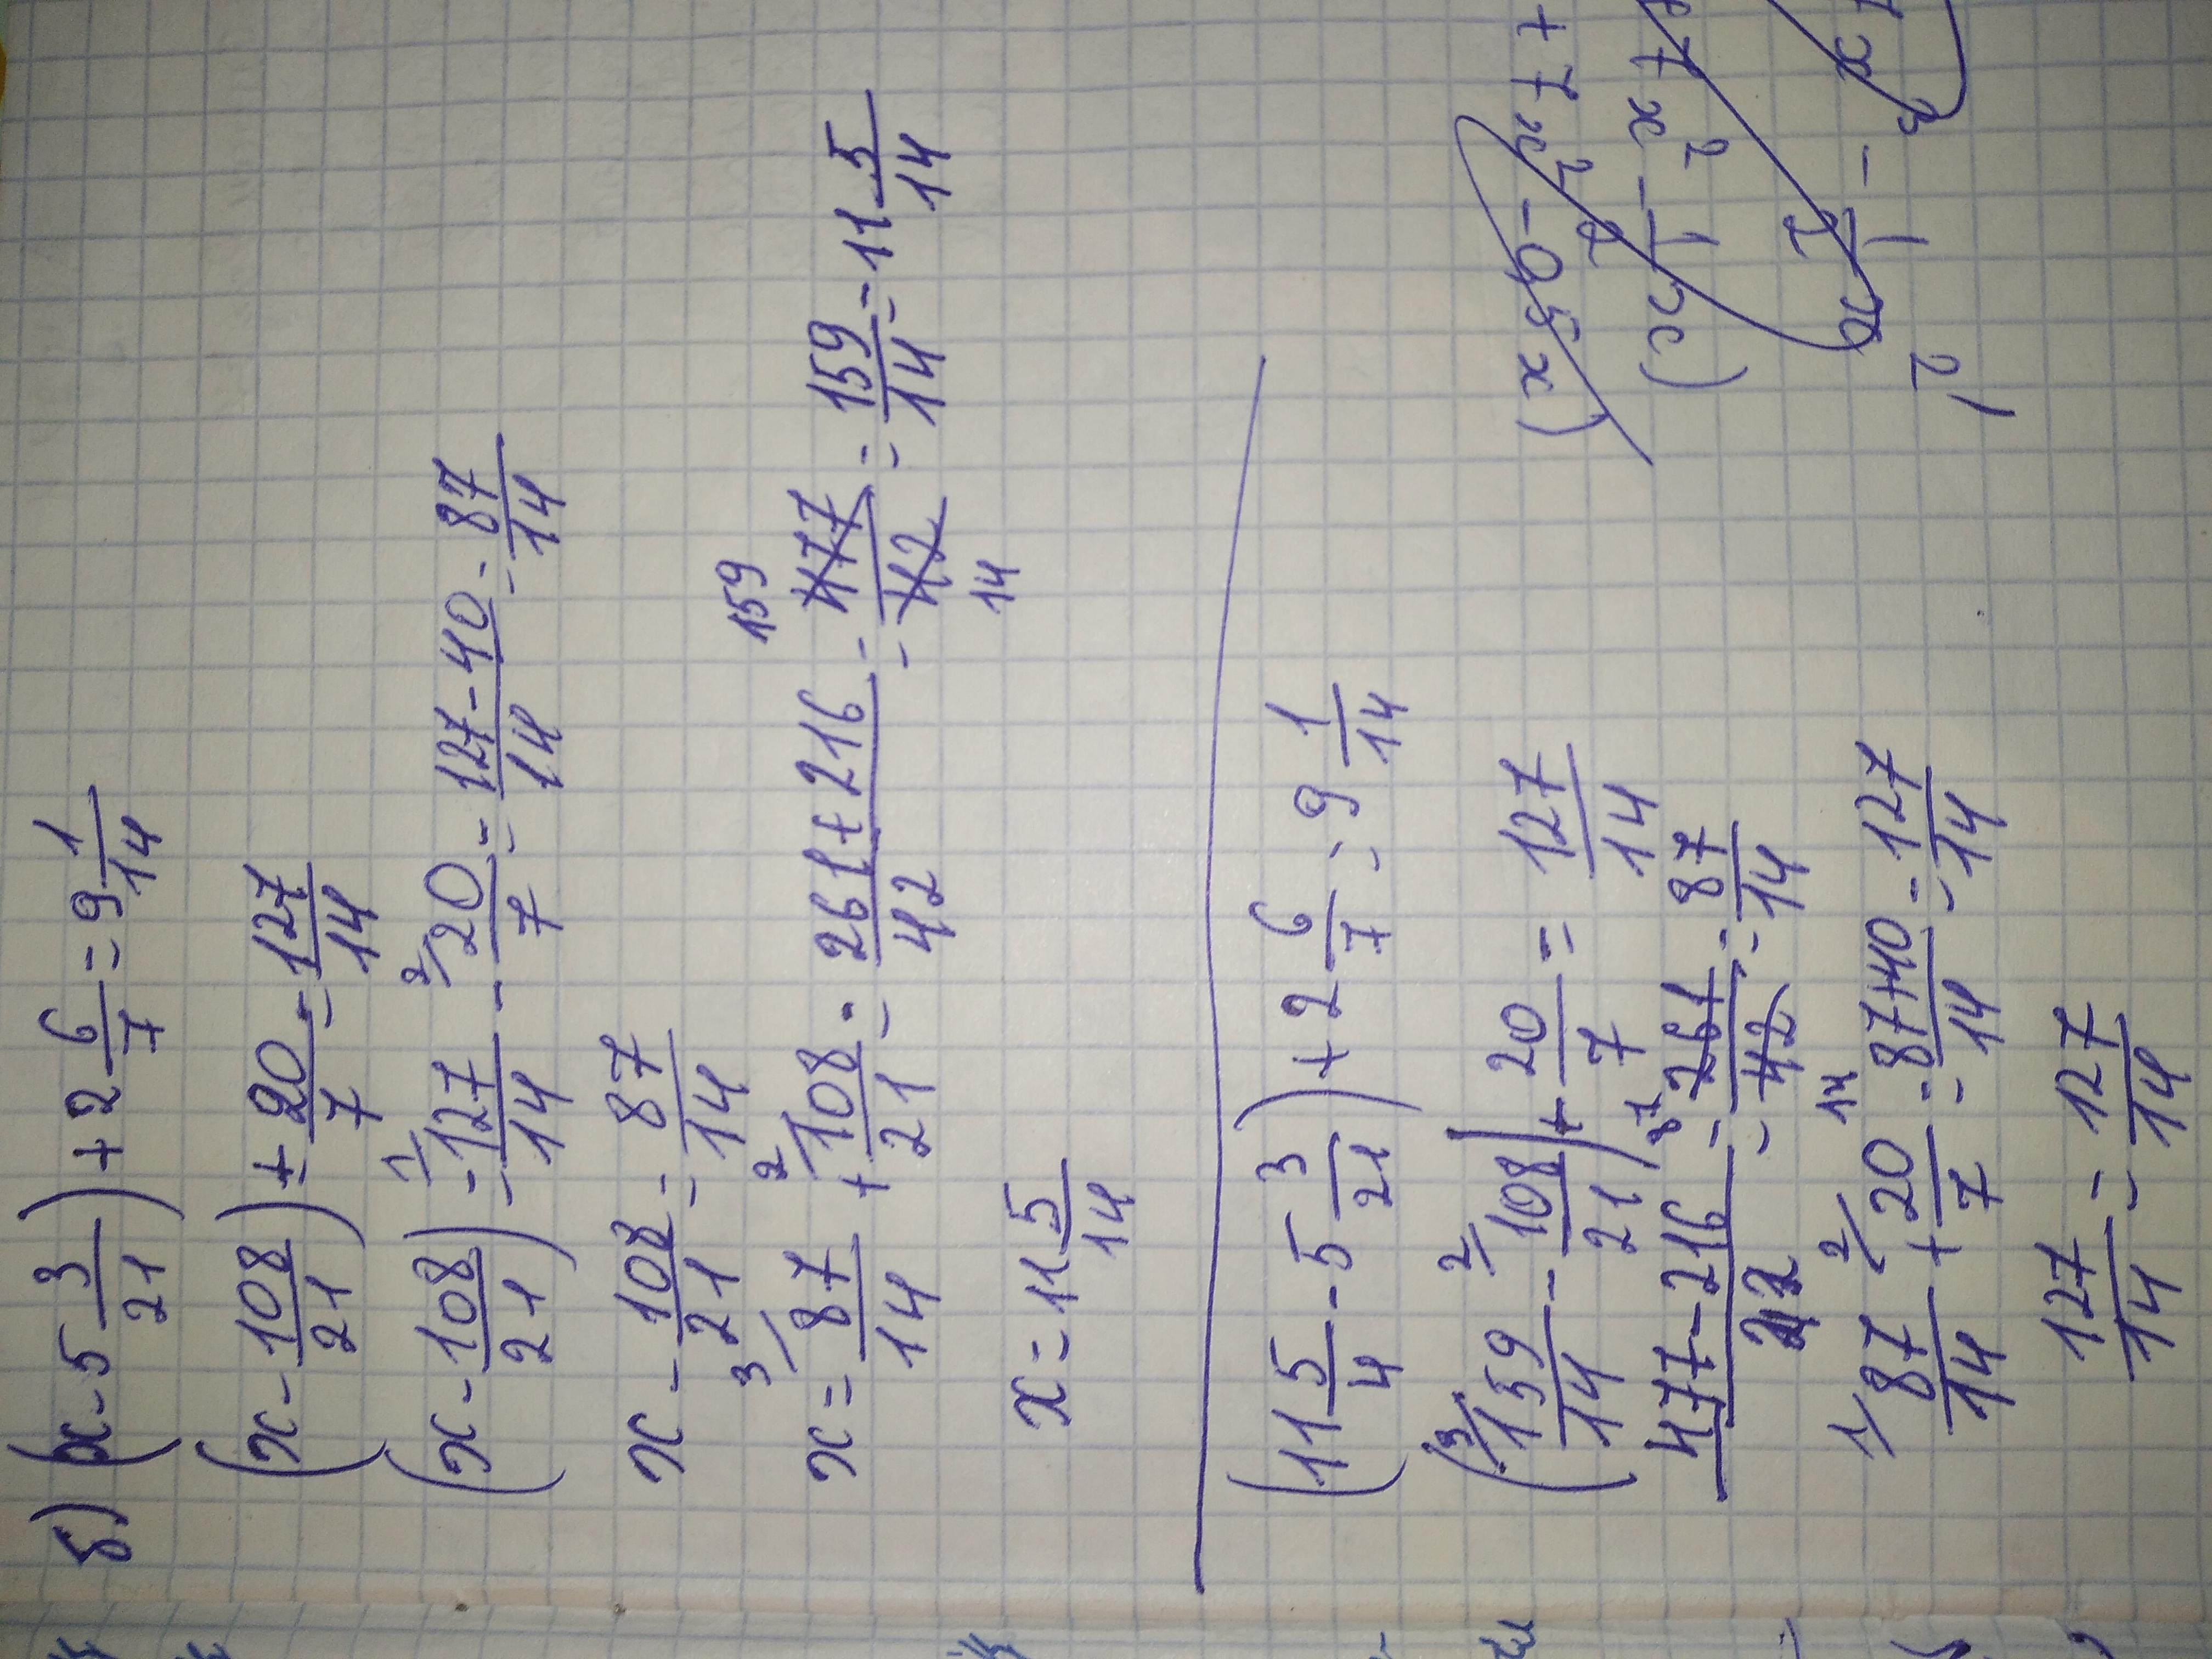 б) (x - 5 3/21) + 2 6/7 = 9 1/14
(x - 108/21) + 20/7 = 127/14
(x - 108/21) = 127/14 - 20/7 = 127-40/14 = 87/14
x - 108/21 = 87/14
x = 87/14 + 108/21 = 261+216/42 = 477/42 = 159/14 = 11 5/14
x = 11 5/14
(11 5/4 - 5 3/21) + 2 6/7 = 9 1/14
(159/14 - 108/21) + 20/7 = 127/14
477-216/42 = 261/42 = 87/14
87/14 + 20/7 = 87+40/14 = 127/14
127/14 = 127/14